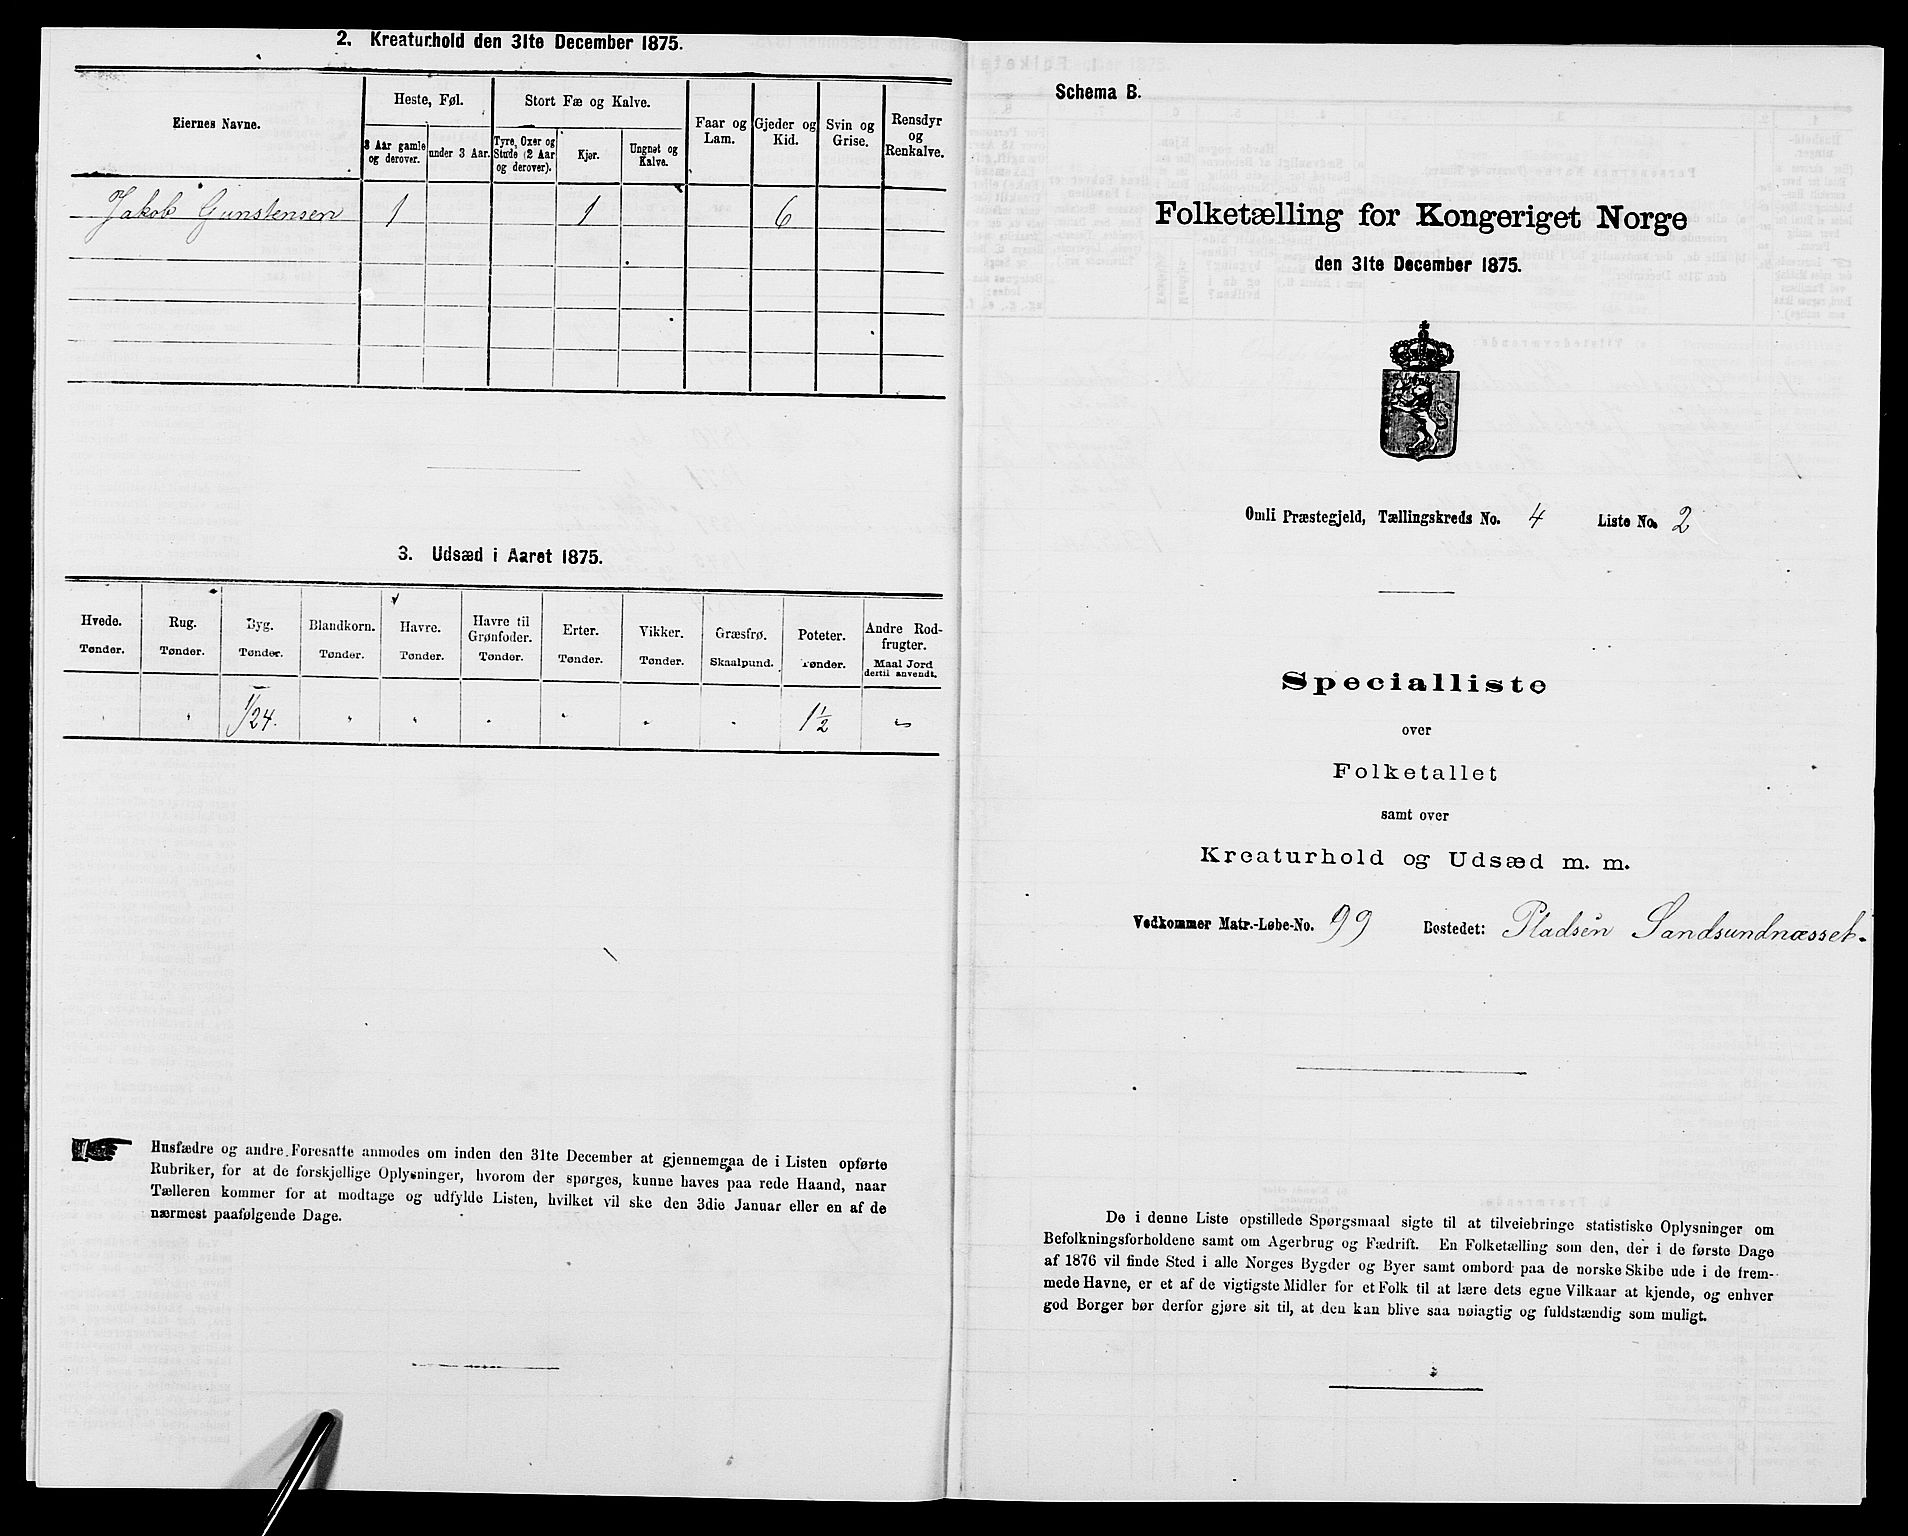 2. Kreaturhold den 31te December 1875.
Eiernes Navne.
Heste, Føl.
3 Aar gamle og derover.
under 3 Aar.
Stort Fæ og Kalve.
Tyre, Oxer og Stude (2 Aar og derover).
Kjør.
Ungnøt og Kalve.
Faar og Lam.
Gjeder og Kid.
Svin og Grise.
Rensdyr og Renkalve.
Jakob Gunstensen 1 1 6
3. Udsæd i Aaret 1875.
Hvede. Rug. Byg. Blandkorn. Havre. Havre til Grønfoder. Erter. Vikker. Græsfrø. Poteter. Andre Rodfrugter.
Tønder. Tønder. Tønder. Tønder. Tønder. Tønder. Tønder. Tønder. Skaalpund. Tønder. Maal Jord dertil anvendt.
" " 1/24. " " " " " " 1½ "
Husfædre og andre Foresatte anmodes om inden den 31te December at gjennemgaa de i Listen opførte
Rubriker, for at de forskjellige Oplysninger, hvorom der spørges, kunne haves paa rede Haand, naar
Tælleren kommer for at modtage og udfylde Listen, hvilket vil ske den 3die Januar eller en af de
nærmest paafølgende Dage.
Schema B.
Folketælling for Kongeriget Norge
den 31te December 1875.
Omli Præstegjeld, Tællingskreds No. 4 Liste No. 2
Specialliste
over
Folketallet
samt over
Kreaturhold og Udsæd m. m.
Vedkommer Matr.-Løbe-No. 99 Bostedet: Pladsen Sandsundnæsset.
De i denne Liste opstillede Spørgsmaal sigte til at tilveiebringe statistiske Oplysninger om
Befolkningsforholdene samt om Agerbrug og Fædrift. En Folketælling som den, der i de første Dage
af 1876 vil finde Sted i alle Norges Bygder og Byer samt ombord paa de norske Skibe ude i de frem-
mede Havne, er et af de vigtigste Midler for et Folk til at lære dets egne Vilkaar at kjende, og enhver
god Borger bør derfor gjøre sit til, at den kan blive saa nøiagtig og fuldstændig som muligt.